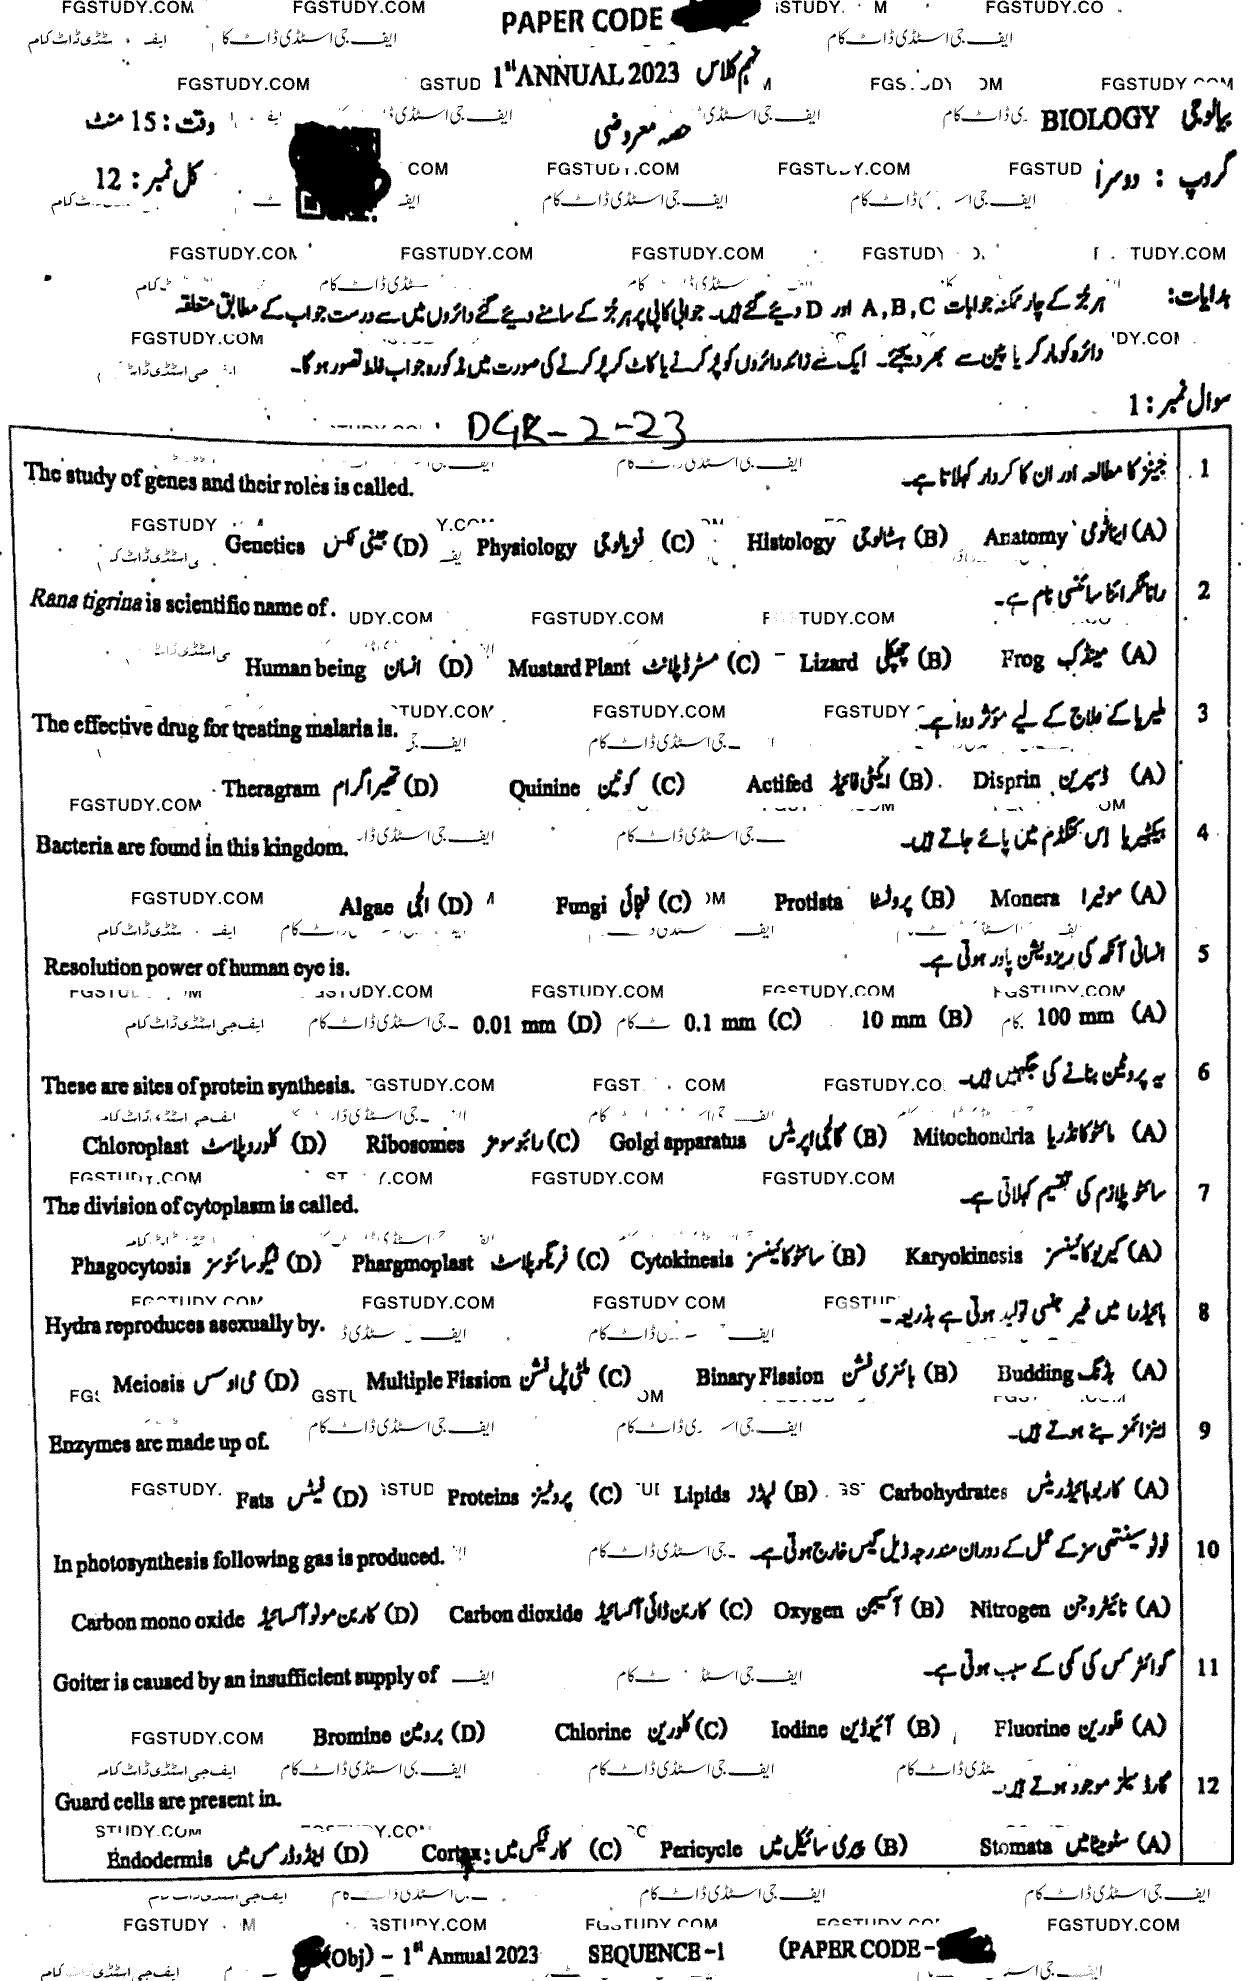 PAPER CODE
1st ANNUAL 2023 نہم کلاس
BIOLOGY بیالوجی
حصہ معروضی
وقت : 15 منٹ
گروپ : دوسرا
کل نمبر : 12
ہدایات: ہر جُز کے چار ممکنہ جوابات A,B,C اور D دیئے گئے ہیں۔ جوابی کاپی پر ہر جُز کے سامنے دیئے گئے دائروں میں سے درست جواب کے مطابق متعلقہ
دائرہ کو مارکر یا پین سے بھر دیجئے۔ ایک سے زائد دائروں کو پُر کرنے یا کاٹ کر پُر کرنے کی صورت میں مذکورہ جواب غلط تصور ہوگا۔
سوال نمبر : 1
DGK-2-23
1 جینز کا مطالعہ اور ان کا کردار کہلاتا ہے۔ The study of genes and their roles is called.
(A) اناٹومی Anatomy (B) ہسٹالوجی Histology (C) فزیالوجی Physiology (D) جینی ٹکس Genetics
2 رانا ٹگرانا کا سائنسی نام ہے۔ Rana tigrina is scientific name of.
(A) مینڈک Frog (B) چھپکلی Lizard (C) مسٹرڈ پلانٹ Mustard Plant (D) انسان Human being
3 ملیریا کے علاج کے لیے مؤثر دوا ہے۔ The effective drug for treating malaria is.
(A) ڈسپرین Disprin (B) ایکٹی فائیڈ Actifed (C) کونین Quinine (D) تھیراگرام Theragram
4 بیکٹیریا اس کنگڈم میں پائے جاتے ہیں۔ Bacteria are found in this kingdom.
(A) مونیرا Monera (B) پروٹسٹا Protista (C) فنجائی Fungi (D) الجی Algae
5 انسانی آنکھ کی ریزولیشن پاور ہوتی ہے۔ Resolution power of human eye is.
(A) 100 mm (B) 10 mm (C) 0.1 mm (D) 0.01 mm
6 یہ پروٹین بنانے کی جگہیں ہیں۔ These are sites of protein synthesis.
(A) مائٹوکانڈریا Mitochondria (B) گالجی اپریٹس Golgi apparatus (C) رائبوسومز Ribosomes (D) کلوروپلاسٹ Chloroplast
7 سائٹوپلازم کی تقسیم کہلاتی ہے۔ The division of cytoplasm is called.
(A) کیریوکائینسز Karyokinesis (B) سائٹوکائینسز Cytokinesis (C) فریگموپلاسٹ Phargmoplast (D) فیگوسائٹوسز Phagocytosis
8 ہائیڈرا میں غیر جنسی تولید ہوتی ہے بذریعہ۔ Hydra reproduces asexually by.
(A) بڈنگ Budding (B) بائنری فشن Binary Fission (C) ملٹی پل فشن Multiple Fission (D) می اوسس Meiosis
9 اینزائمز بنے ہوتے ہیں۔ Enzymes are made up of.
(A) کاربوہائیڈریٹس Carbohydrates (B) لپڈز Lipids (C) پروٹینز Proteins (D) فیٹس Fats
10 فوٹو سینتھی سز کے عمل کے دوران مندرجہ ذیل گیس خارج ہوتی ہے۔ In photosynthesis following gas is produced.
(A) نائٹروجن Nitrogen (B) آکسیجن Oxygen (C) کاربن ڈائی آکسائیڈ Carbon dioxide (D) کاربن مونو آکسائیڈ Carbon mono oxide
11 گوائٹر کس کی کمی کے سبب ہوتی ہے۔ Goiter is caused by an insufficient supply of
(A) فلورین Fluorine (B) آئیوڈین Iodine (C) کلورین Chlorine (D) برومین Bromine
12 گارڈ سیلز موجود ہوتے ہیں۔ Guard cells are present in.
(A) سٹومیٹا میں Stomata (B) پیری سائیکل میں Pericycle (C) کارٹیکس میں Cortex (D) اینڈوڈرمس میں Endodermis
(Obj) - 1st Annual 2023 SEQUENCE-1 (PAPER CODE -